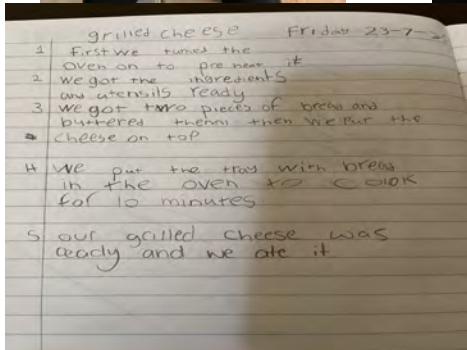 grilled cheese Friday 23-7-
1 First we turned the
oven on to pre heat it
2 we got the ingredients
and utensils ready
3 we got two pieces of bread and
buttered them then we put the
cheese on top
4 we put the tray with bread
in the oven to cook
for 10 minutes
5 our grilled cheese was
ready and we ate it